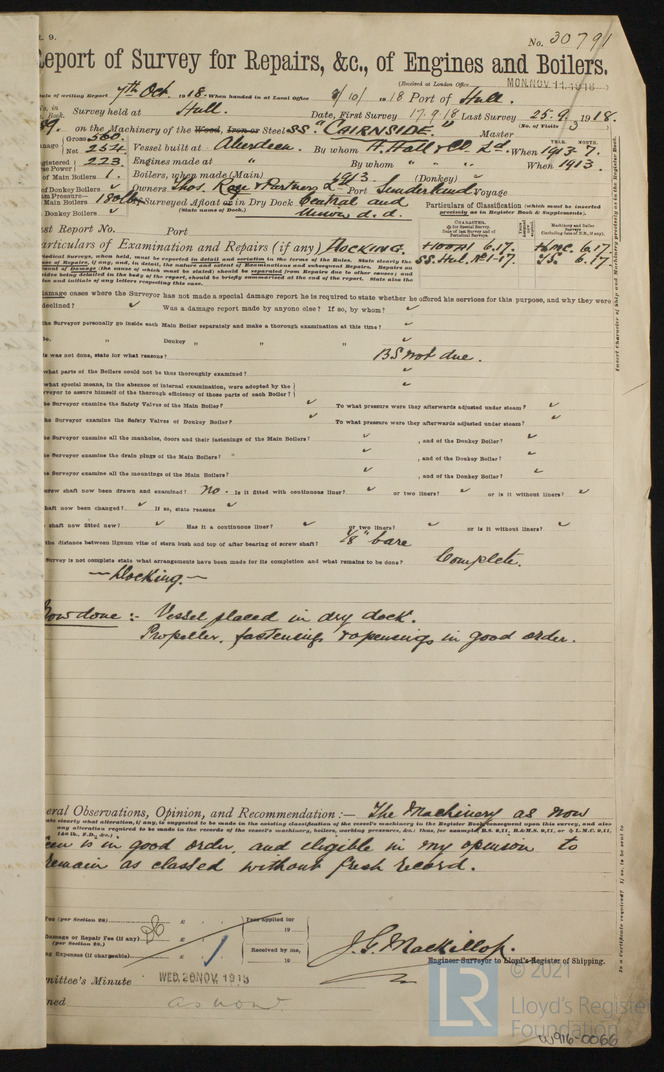 t. 9.
No. 30791
Report of Survey for Repairs, &c., of Engines and Boilers.
(Received at London Office MON. NOV 11. 1918
Date of writing Report 7th Oct 1918. When handed in at Local Office 8/10/1918 Port of Hull.
Survey held at Hull. Date, First Survey 17.9.18 Last Survey 25.9.1918.
(No. of Visits 3)
on the Machinery of the Wood, Iron or Steel SS. "CAIRNSIDE." Master
Gross 560.
Net 254. Vessel built at Aberdeen. By whom A. Hall & Co. Ld. When 1913 7.
YEAR. MONTH.
Registered 223. Engines made at " By whom " When 1913.
of Main Boilers 1. Boilers, when made (Main) 1913. (Donkey) ✓
of Donkey Boilers ✓ Owners Thos. Rose & Partners Ld. Port Sunderland Voyage
Main Boilers 180 lbs Surveyed Afloat or in Dry Dock Central and
(State name of Dock.)
Donkey Boilers ✓ Union d. d.
Particulars of Classification (which must be inserted
precisely as in Register Book & Supplements).
Last Report No. Port
Particulars of Examination and Repairs (if any) DOCKING.
+100A1 6.17. +LMC. 6.17
SS. Hul. No. 1-17. TS. 6.17
damage cases where the Surveyor has not made a special damage report he is required to state whether he offered his services for this purpose, and why they were
declined? ✓ Was a damage report made by anyone else? If so, by whom? ✓
the Surveyor personally go inside each Main Boiler separately and make a thorough examination at this time? ✓
" Donkey " " " ✓
this was not done, state for what reasons? BS not due.
what parts of the Boilers could not be thus thoroughly examined? ✓
what special means, in the absence of internal examination, were adopted by the
Surveyor to assure himself of the thorough efficiency of those parts of each Boiler? ✓
the Surveyor examine the Safety Valves of the Main Boiler? ✓ To what pressure were they afterwards adjusted under steam? ✓
the Surveyor examine the Safety Valves of Donkey Boiler? ✓ To what pressure were they afterwards adjusted under steam? ✓
the Surveyor examine all the manholes, doors and their fastenings of the Main Boilers? ✓ , and of the Donkey Boiler? ✓
the Surveyor examine the drain plugs of the Main Boilers? ✓ , and of the Donkey Boiler? ✓
the Surveyor examine all the mountings of the Main Boilers? ✓ , and of the Donkey Boiler? ✓
screw shaft now been drawn and examined? No. Is it fitted with continuous liner? ✓ or two liners? ✓ or is it without liners? ✓
shaft now been changed? ✓ If so, state reasons ✓
shaft now fitted new? ✓ Has it a continuous liner? ✓ or two liners? ✓ or is it without liners? ✓
the distance between lignum vitæ of stern bush and top of after bearing of screw shaft? 1/8" bare
Survey is not complete state what arrangements have been made for its completion and what remains to be done? Complete.
— Docking. —
Now done :- Vessel placed in dry dock.
Propeller, fastenings & openings in good order.
General Observations, Opinion, and Recommendation :— The Machinery as now
seen is in good order, and eligible in my opinion to
remain as classed without fresh record.
Fee (per Section 28) £ : : Fees applied for
19
Damage or Repair Fee (if any) £ : :
(per Section 28.)
Received by me,
Expenses (if chargeable) £ : : 19
J. G. Mackillop.
Engineer Surveyor to Lloyd's Register of Shipping.
Committee's Minute WED. 20 NOV. 1918
Assigned as now.
© 2021
LR
Lloyd's Register
Foundation
W916-0066